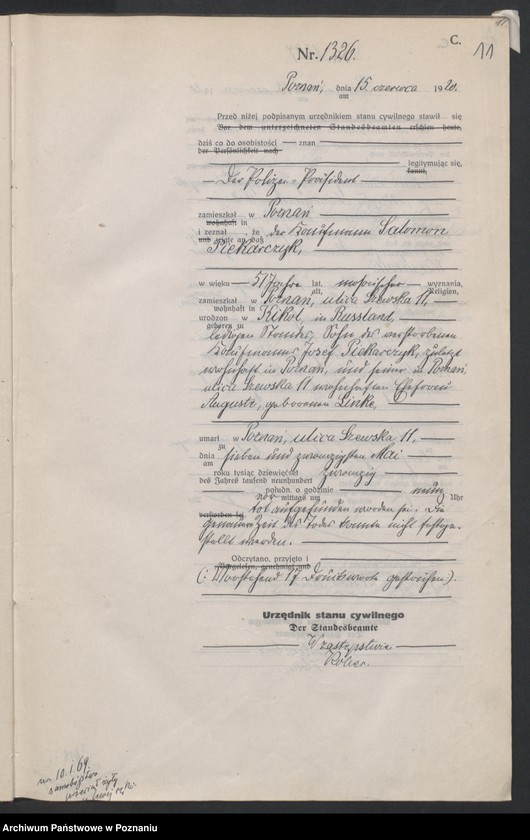 C.
11
Nr. 1326.
Poznań, dnia 15. czerwca 1920.
am
Przed niżej podpisanym urzędnikiem stanu cywilnego stawił się
Vor dem unterzeichneten Standesbeamten erschien heute,
dziś co do osobistości — znan
der Persönlichkeit nach
legitymując się,
kannt,
— Der Polizei-Präsident —
zamieszkał w Poznań
wohnhaft in
i zeznał, że der Kaufmann Salomon
und zeigte an, daß
Piekarczyk,
w wieku — 51 Jahre lat, mosaischer — wyznania,
alt, Religion,
zamieszkał w Poznań, ulica Szewska 11,
wohnhaft in
urodzon w Kikol, in Russland
geboren zu
ledigen Standes, Sohn des verstorbenen
Kaufmanns Josef Piekarczyk, zuletzt
wohnhaft in Poznań, und seiner in Poznań
ulica Szewska 11 wohnhaften Ehefrau
Auguste, geborenen Linke,
umarł w Poznań, ulica Szewska 11.
zu
dnia sieben und zwanzigsten Mai
am
roku tysiąc dziewięćset zwanzig
des Jahres tausend neunhundert
połudn. o godzinie neun Uhr
vor mittags um
verstorben sei tot aufgefunden worden sei. Die
genaue Zeit des Todes konnte nicht festge-
stellt werden.
Odczytano, przyjęto i
Vorgelesen, genehmigt und
(: Vorstehend 17 Druckworte gestrichen :).
Urzędnik stanu cywilnego
Der Standesbeamte
W zastępstwie
10.1.69.
Archiwum Państwowe w Poznaniu